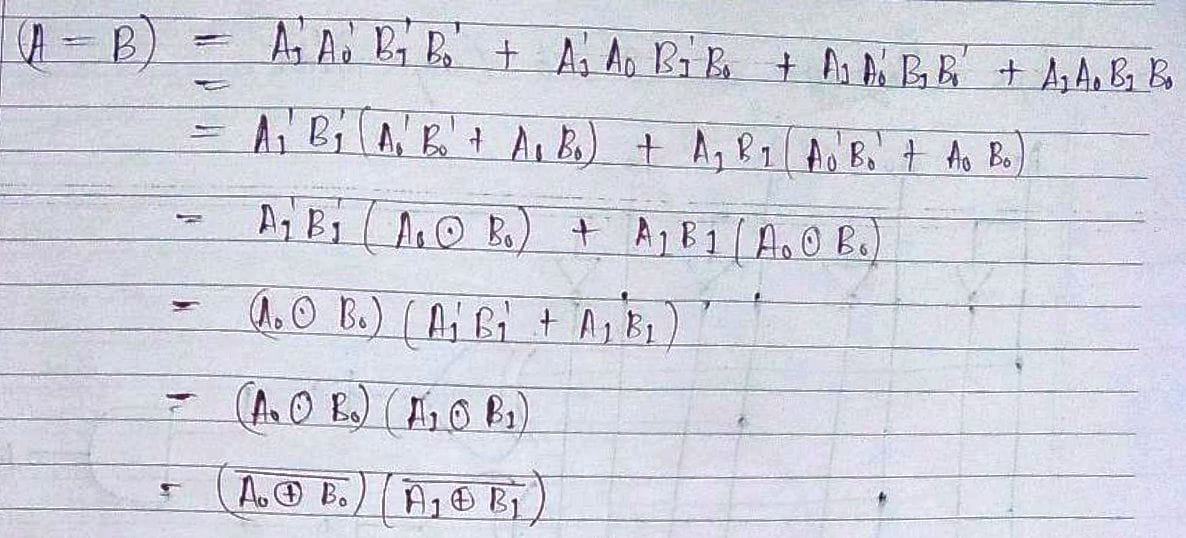 (A = B) = A₁'A₀'B₁'B₀' + A₁'A₀B₁'B₀ + A₁A₀'B₁B₀' + A₁A₀B₁B₀
=
= A₁'B₁'(A₀'B₀' + A₀B₀) + A₁B₁(A₀'B₀' + A₀B₀)
= A₁'B₁'(A₀⊙B₀) + A₁B₁(A₀⊙B₀)
= (A₀⊙B₀)(A₁'B₁' + A₁B₁)
= (A₀⊙B₀)(A₁⊙B₁)
= (A̅₀̅ ̅⊕̅ ̅B̅₀̅)(A̅₁̅ ̅⊕̅ ̅B̅₁̅)